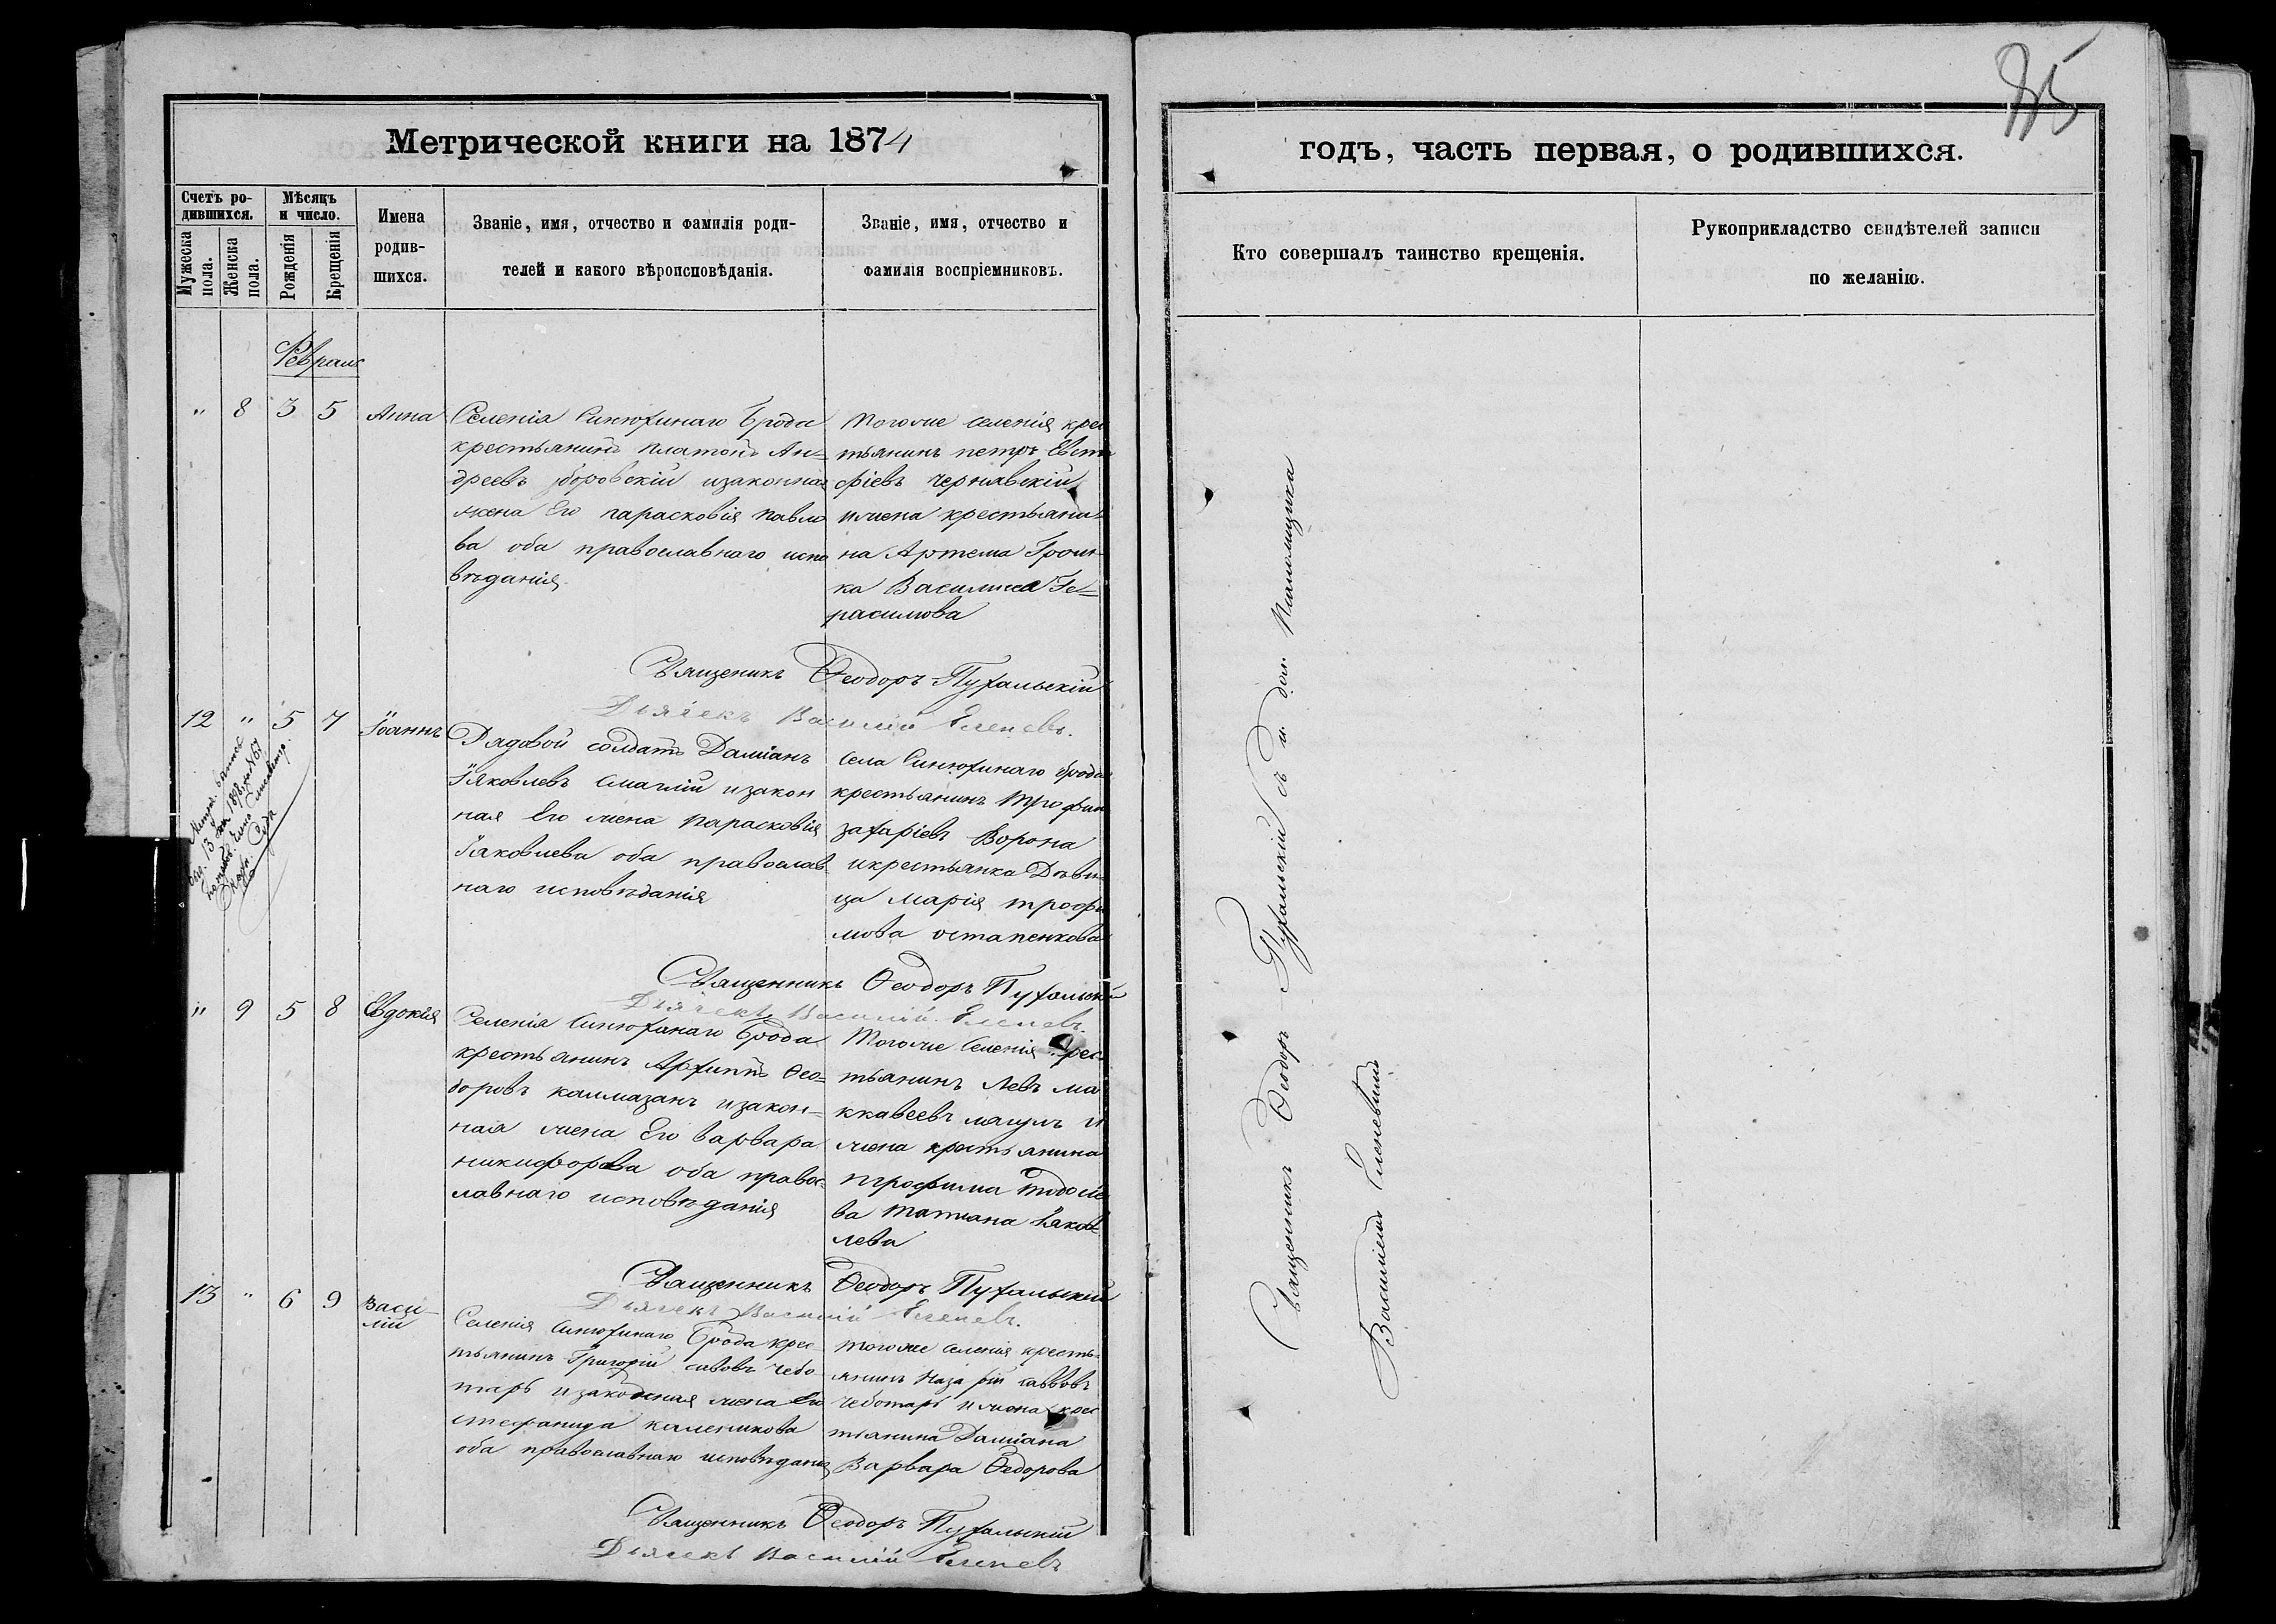 85
Метрической книги на 1874
годъ, часть первая, о родившихся.
Счетъ ро-
дившихся.
Мужеска пола.
Женска пола.
Мѣсяцъ
и число.
Рожденія
Крещенія
Имена
родив-
шихся.
Званіе, имя, отчество и фамилія роди-
телей и какого вѣроисповѣданія.
Званіе, имя, отчество и
фамилія воспріемниковъ.
Кто совершалъ таинство крещенія.
Рукоприкладство свидѣтелей записи
по желанію.
Февраль
" 8 3 5 Анна
Селенія Синюхинаго Брода
крестьянинъ Платонъ Ан-
дреевъ зборовскій изаконная
жена Его параскoвія павло
ва оба православнаго испо
вѣданія
Тогоже селенія крес
тьянинъ петръ Евста
фіевъ чернявскій
ижена крестьяни
на Артема Громи-
ка Василиса Ге-
расимова
Священикъ Ѳеодоръ Пухальскій
Дьячекъ Василій Еленевъ.
12 " 5 7 Іоаннъ
Рядовой солдатъ Даміанъ
Іяковлевъ смаглій изакон
ная Его жена Парасковія
Іаковлева оба православ
наго исповѣданія
села Синюхинаго брода
крестьянинъ Трофим
захаріевъ Ворона
икрестьянка Дѣви-
ца Марія трофи
мова остапенкова
Священникъ Ѳеодоръ Пухальскій
Дьячекъ Василій Еленевъ.
" 9 5 8 Евдокія
Селенія Синюхинаго Брода
крестьянинъ Архиппъ Ѳео-
доровъ калмазанъ изакон-
ная жена Его варвара
никифорова оба правос-
лавнаго исповѣданія
Тогоже Селенія крес
тьянинъ Левъ ма
ккавеевъ мазулъ и
жена крестьянина
трофима тодосіе
ва татиана Іаков-
лева
Священникъ Ѳеодоръ Пухальскій
Дьячекъ Василій Еленевъ.
13 " 6 9 Васи-
лій
Селенія Синюхинаго Брода крес
тьянинъ Григорій савовъ чебо
таръ изаконная жена Его
стефанида калениkова
оба православнаго исповѣданія
тогоже селенія кресть-
янинъ Назарій саввовъ
чеботаръ ижена крес
тьянина Даміана
Варвара Ѳедорова
Священникъ Ѳеодоръ Пухальскій
Дьячекъ Василій Еленевъ
Священникъ Ѳеодоръ Пухальскій съ и. дол. Псаломщика
Василіемъ Еленевымъ